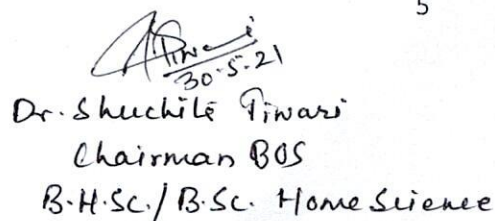 5
Tiwari
30-5-21
Dr. Shuchite Tiwari
Chairman BOS
B.H.Sc./B.Sc. Home Science